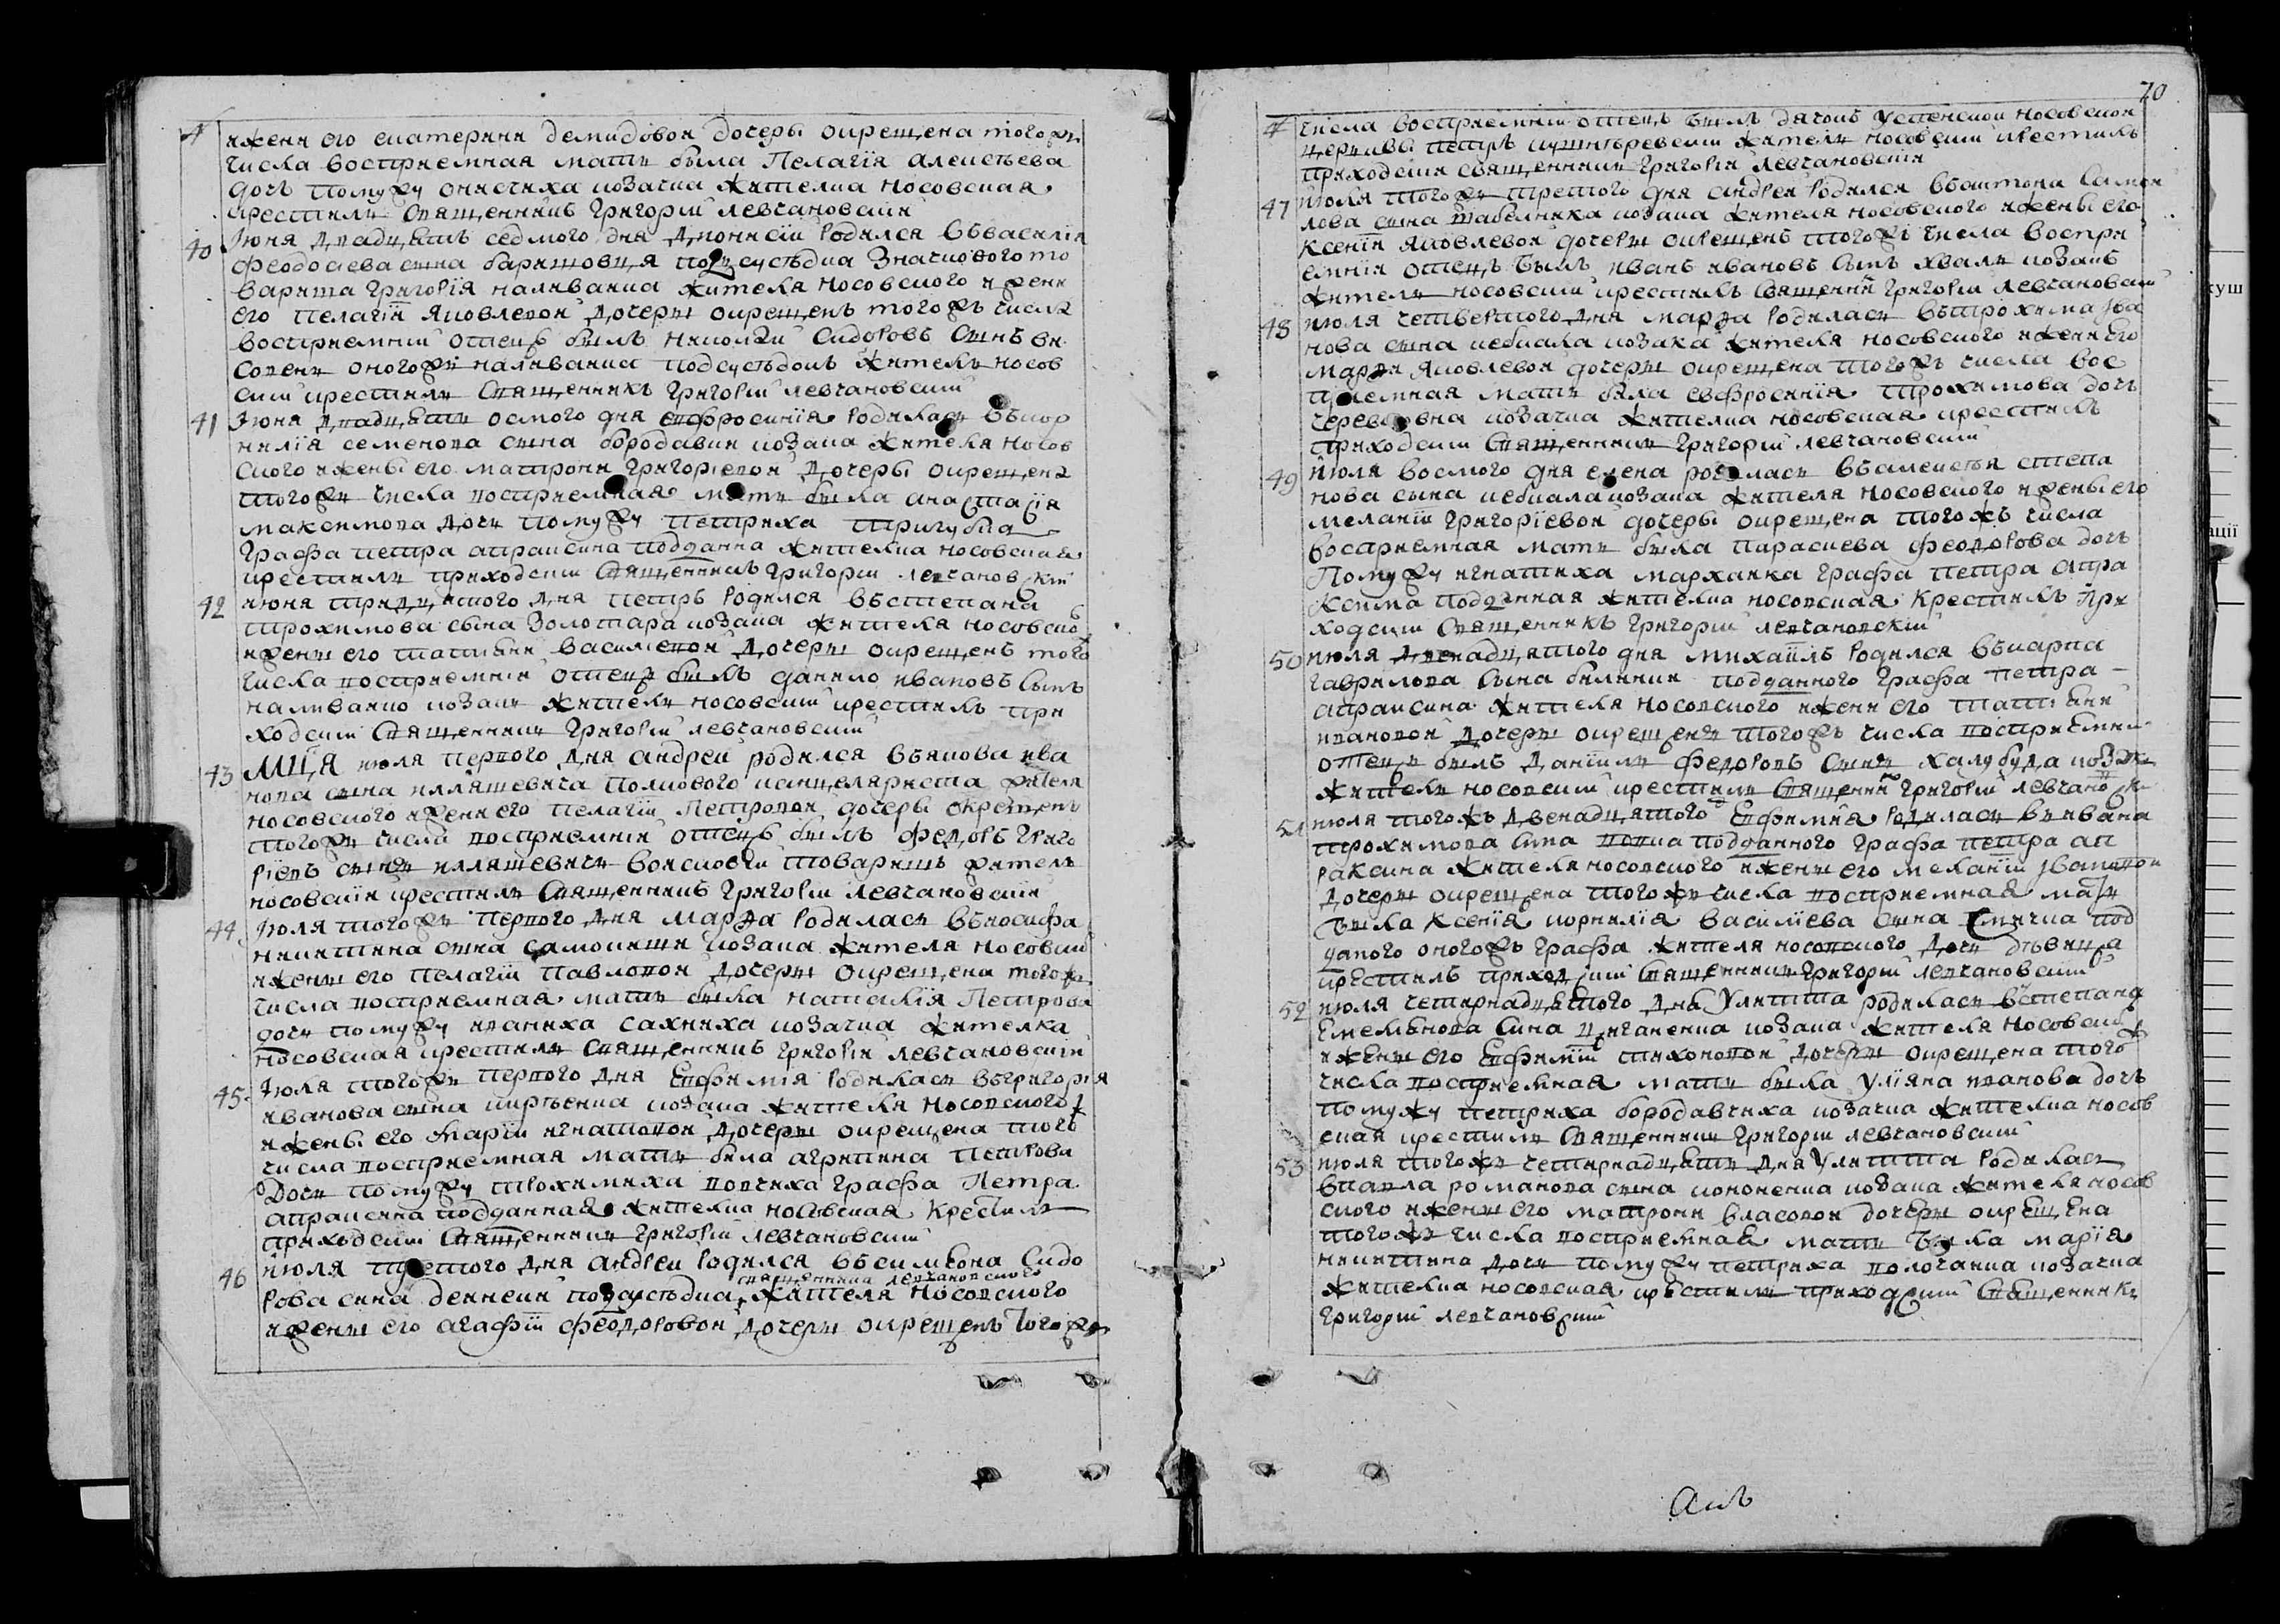 4
ижени его екатерини демидовои дочеры окрещена того ж
числа восприемная мати была Пелагїя алеѯѣева
дочъ помужу онисчиха козачка жителка носовская
крестилъ Священникъ Григорїй левчановскїй
40 Июня двадцять седмого дня Дионисїй родился въвасилїя
феодосіева сына баришовця подсусѣдка Значкового то
вариша Григорїя наливаика жителя носовского ижени
его пелагїи яковлевои дочеры окрещенъ тогожъ числа
восприемнїй отецъ былъ николай Сидоровъ Сынъ
оногожъ наливаика подсусѣдокъ жителъ носов
скїй крестилъ Священникъ Григорїй левчановскїй
41 Июня двадцять осмого дня евфросинїя родиласъ въкор
нилїя семенова сына бородавки козака жителя носов
ского ижены его матрони григорїевои дочеры окрещена
тогожъ числа восприемная мати была анастасїя
максимова дочъ помужу петриха тригубка
графа петра апраксина подданна жителка носовская
крестилъ приходскїй Священникъ Григорїй левчановскїй
42 июня тридцятого дня петръ родился въстепана
трохимова сына Золотара козака жителя носовско
иженъ его татїяни василевои дочеры окрещенъ того
числа восприемнїй отецъ былъ данило ивановъ Сынъ
наливаико козакъ жителъ носовскїй крестилъ при
ходскїй Священникъ Григорїй левчановскїй
43 МЦА июля первого дня андреи родился въякова ива
нова сына илляшевича полкового канцеляриста жителя
носовского ижени его пелагїи Петровои дочеры окрещенъ
тогожъ числа восприемнїй отецъ былъ федоръ григо
рїевъ сынъ илляшевичъ воисковїй товаришъ жителъ
носовскїй крестилъ Священникъ Григорїй левчановскїй
44 Июля тогожъ первого дня Марфа родиласъ въиосифа
никитина сына самокиши козака жителя носовско
ижены его пелагїи павловои дочеры окрещена того ж
числа восприемная мати была наталїя Петрова
дочъ помужу иваниха сахниха козачка жителка
носовская крестилъ Священникъ Григорїй левчановскїй
45 Июля тогожъ первого дня Евфимїя родиласъ въгригорїя
иванова сына козака жителя носовского
ижены его Марїи игнатовои дочеры окрещена того ж
числа восприемная мати была агрипина Петрова
дочъ помужу трохимиха попчиха графа Петра
апраксина подданная жителка носовская крестилъ
приходскїй Священникъ Григорїй левчановскїй
46 июля третого дня андреи родился въсимеона Сидо
священника левчановского
рова сина подсусѣдка жителя носовского
иженъ его агафїи феодоровои дочеры окрещенъ того ж
70
4
числа восприемнїй отецъ былъ дячокъ успенскои носовскои
церкви петръ жителъ носовскїй крестилъ
приходскїй священникъ Григорїй левчановскїй
47 июля тогожъ третого дня андреи родился въантона Самои
лова сына козака жителя носовского ижены его
Ксенїи яковлевои дочеры окрещенъ тогожъ числа воспри
емнїй отецъ былъ иванъ ивановъ сынъ хваль козакъ
жителъ носовскїй крестилъ Священни Григорїй левчановскїй
48 июля четвертого дня марфа родиласъ вътрохима Iва
нова сына кебкала козака жителя носовского ижени его
марфи яковлевои дочеры окрещена тогожъ числа вос
приемная мати била евфросинїя трохимова дочъ
козачка жителка носовская крестилъ
приходскїй Священникъ Григорїй левчановскїй
49 июля восмого дня елена родиласъ въалеѯѣя степа
нова сына кебкала козака жителя носовского ижены его
меланїи григорїевои дочеры окрещена тогожъ числа
восприемная мати была параскева феодорова дочъ
помужу игнатиха марханка графа петра апра
ксима подданная жителка носовская крестилъ при
ходскїй Священникъ Григорїй левчановскїй
50 июля двенадцятого дня михаилъ родился въкарпа
гаврилова Сына билички подданного графа петра
апраксина жителя носовского ижени его татїяни
ивановои дочеры окрещенъ тогожъ числа восприемни
отецъ былъ Данїилъ федоровъ Сынъ халубуда козакъ
жителъ носовскїй крестилъ Священни Григорїй левчано
51 июля тогожъ двенадцятого Евфимїя родиласъ въ ивана
трохимова Сина подданного графа петра ап
раксина жителя носовского ижены его меланїи Iвановои
дочеры окрещена тогожъ числа восприемная мати
была Ксенїя корнилїя василїева сына под
даного оногожъ графа жителя носовского дочъ дѣвица
крестилъ приходскїй Священникъ Григорїй левчановскїй
52 июля четирнадцятого дня Улитта родиласъ встепана
Емеляненова Сина циганенка козака жителя носовско
ижены его Евфимїи тихоновои дочеры окрещена того ж
числа восприемная мати была улїяна иванова дочъ
помужу петриха бородавчиха козачка жителка носов
ская крестилъ Священникъ Григорїй левчановскїй
53 июля тогожъ четирнадцять дня Улитта родиласъ
впавла романова сына кононенка козака жителя носов
ского ижены его матрони власовои дочеры окрещена
тогожъ числа восприемная мати была марїя
никитина дочъ помужу петриха козачка
жителка носовская крестилъ приходскїй Священникъ
григорїй левчановскїй